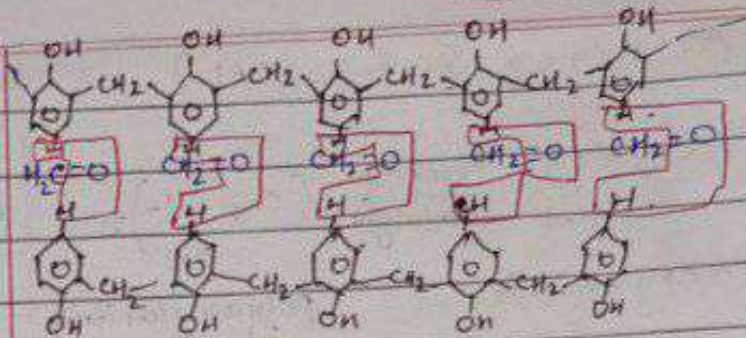 OH OH OH OH OH
CH2 CH2 CH2 CH2
H H H H H
H2C=O CH2=O CH2=O CH2=O CH2=O
H H H H H
CH2 CH2 CH2 CH2
OH OH OH OH OH